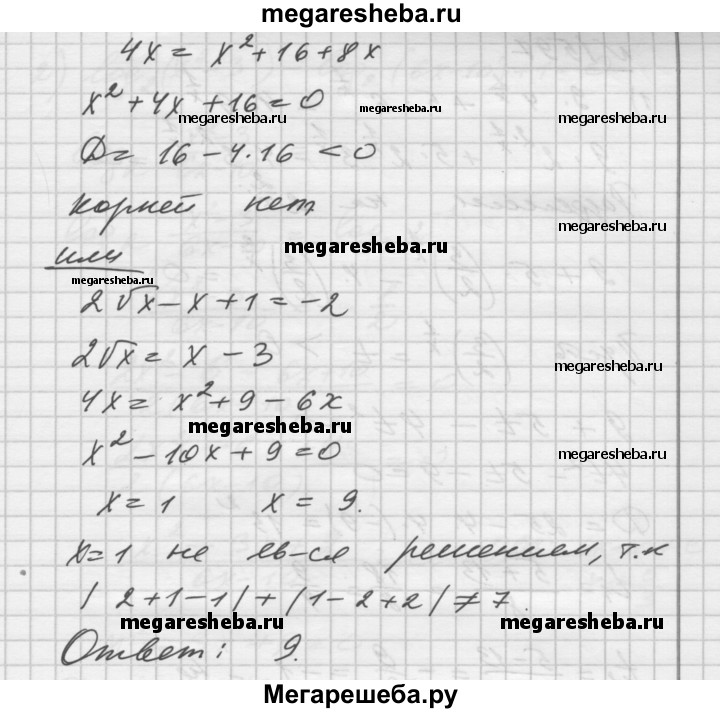 megaresheba.ru
4x = x²+16+8x
x²+4x+16=0
megaresheba.ru
megaresheba.ru
megaresheba.ru
D= 16-4·16 <0
корней нет
megaresheba.ru
или
megaresheba.ru
megaresheba.ru
2√x-x+1=-2
2√x= x-3
megaresheba.ru
4x= x²+9-6x
megaresheba.ru
x²-10x+9=0
megaresheba.ru
x=1 x=9.
x=1 не яв-ся решением, т.к
|2+1-1|+|1-2+2|≠7.
megaresheba.ru
megaresheba.ru
Ответ: 9.
Мегарешеба.ру